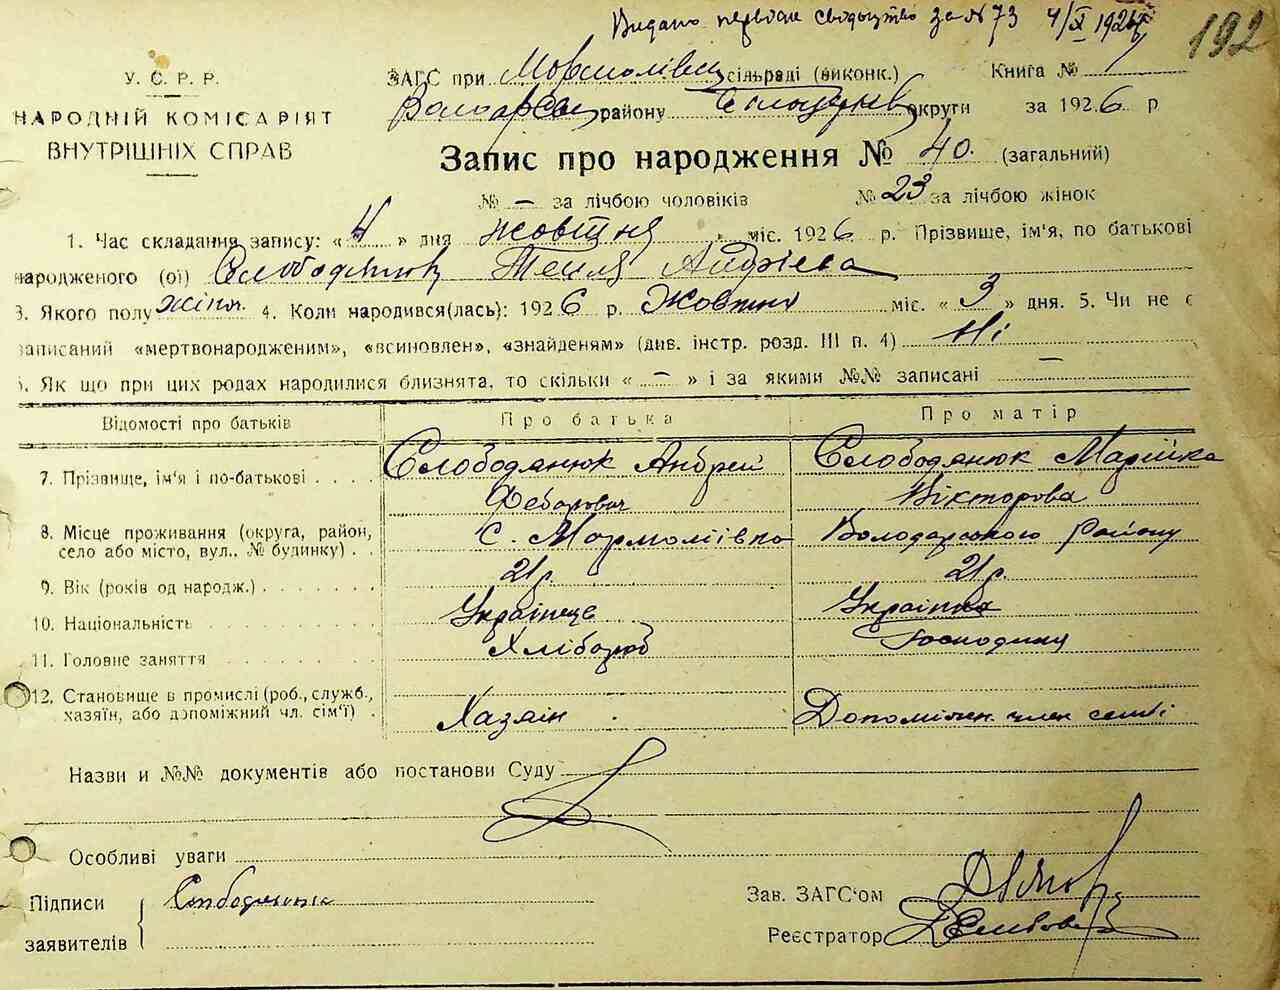 Видано первісне свідоцтво за № 73 4/X 1926
192
У. С. Р. Р.
НАРОДНІЙ КОМІСАРІЯТ
ВНУТРІШНІХ СПРАВ
ЗАГС при сільраді (виконк.) Книга №
району округи за 1926 р
Запис про народження № 40. (загальний)
№ – за лічбою чоловіків № 23 за лічбою жінок
1. Час складання запису: «4» дня жовтня міс. 1926 р. Прізвище, ім'я, по батькові
народженого (ої) Слободянюк Андріева
3. Якого полу жіноч. 4. Коли народився(лась): 1926 р. Жовтня міс. «3» дня. 5. Чи не є
записаний «мертвонародженим», «всиновлен», «знайденям» (див. інстр. розд. III п. 4) Ні
. Як що при цих родах народилися близнята, то скільки « – » і за якими №№ записані –
Відомості про батьків Про батька Про матір
7. Прізвище, ім'я і по-батькові Слободянюк Андрей Слободянюк Марійка
Федорович Вікторова
8. Місце проживання (округа, район,
село або місто, вул., № будинку) С. Мормоліївка Володарського Району
9. Вік (років од народж.) 21р. 21р.
10. Національність Українець Українка
11. Головне заняття Хлібороб Господиня
12. Становище в промислі (роб., служб.,
хазяїн, або допоміжний чл. сім'ї) Хазяін Допоміжн. член семі
Назви и №№ документів або постанови Суду
Особливі уваги
Підписи
заявителів
Зав. ЗАГС'ом
Реєстратор